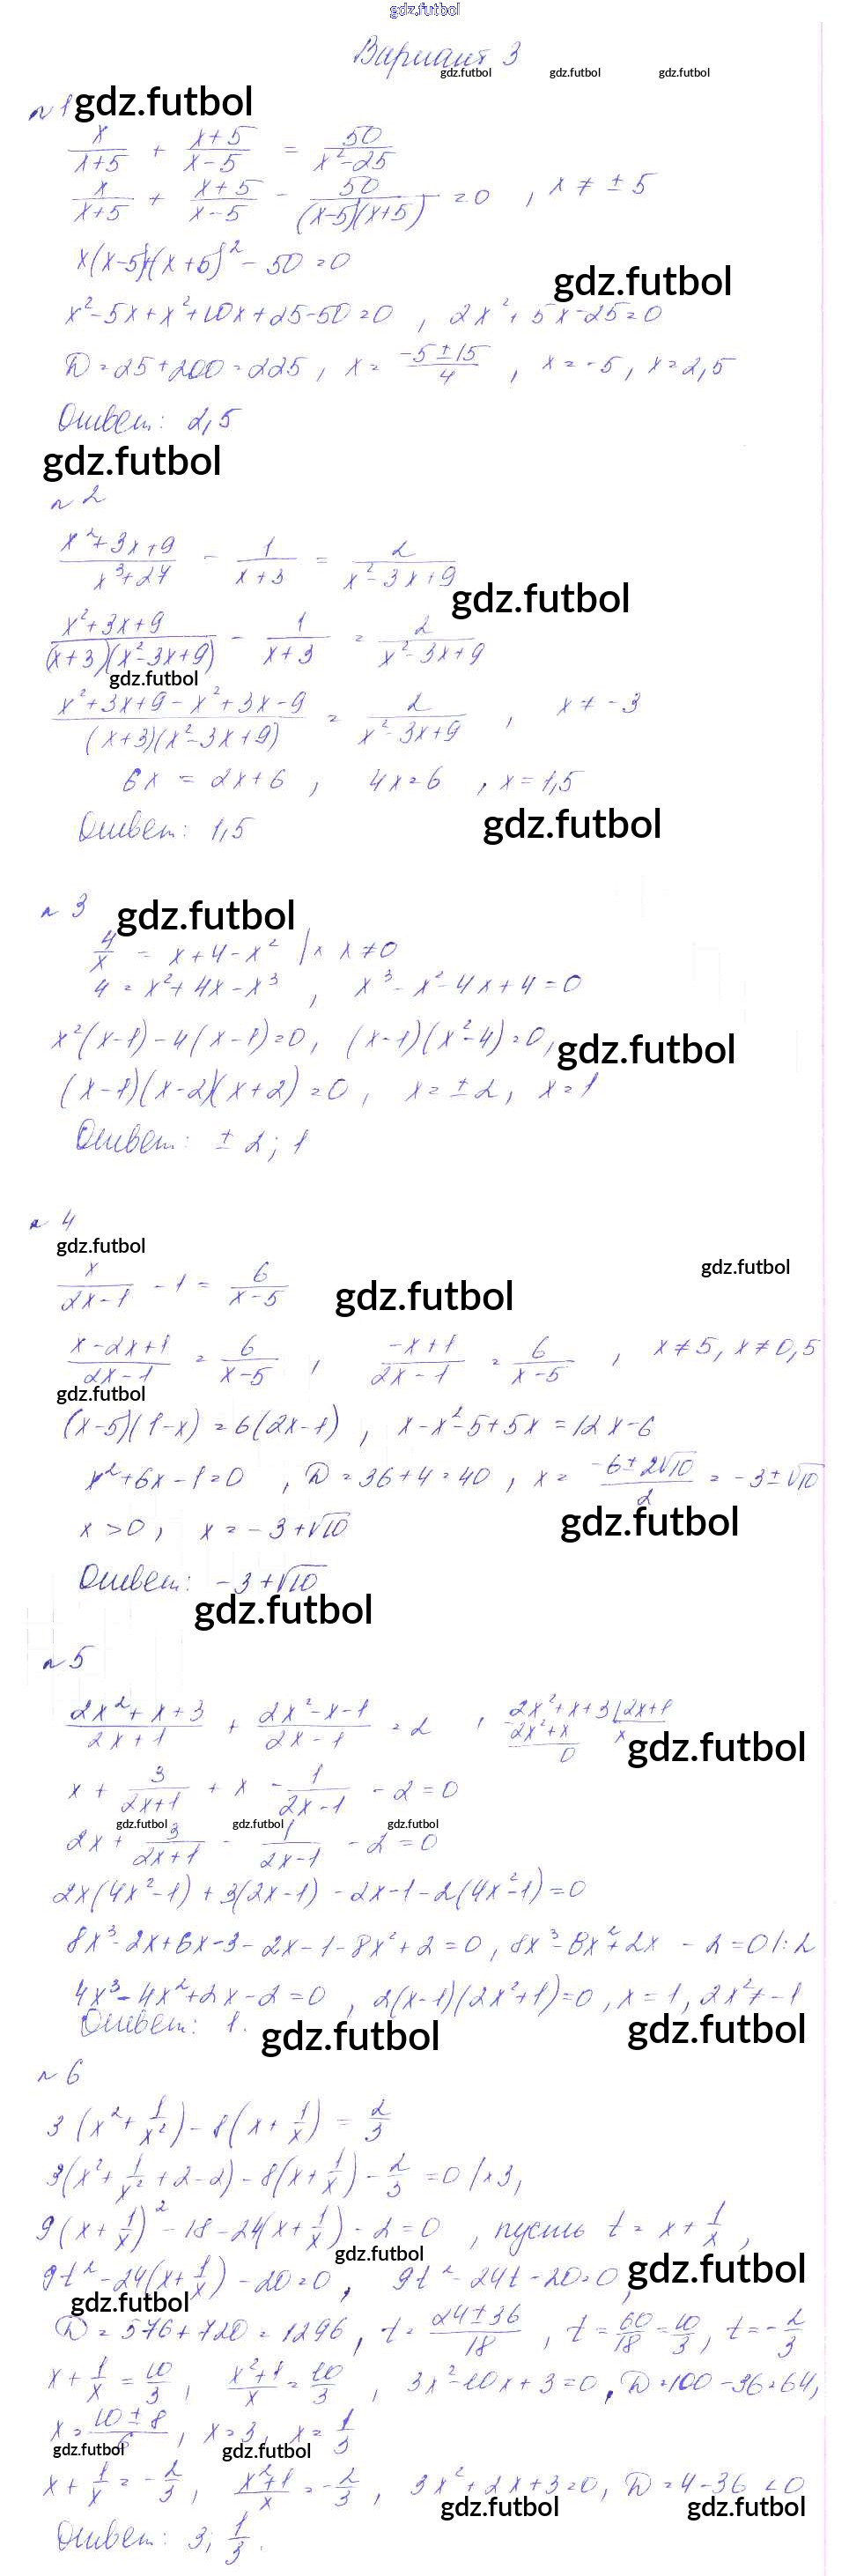 gdz.futbol
Вариант 3
gdz.futbol gdz.futbol gdz.futbol
n 1 gdz.futbol
x/(x+5) + (x+5)/(x-5) = 50/(x²-25)
x/(x+5) + (x+5)/(x-5) - 50/((x-5)(x+5)) = 0 , x ≠ ± 5
x(x-5)+(x+5)² - 50 = 0
gdz.futbol
x²-5x+x²+10x+25-50=0 , 2x²+5x-25=0
D=25+200=225, x = (-5±15)/4 , x=-5, x=2,5
Ответ: 2,5
gdz.futbol
n 2
(x²+3x+9)/(x³+27) - 1/(x+3) = 2/(x²-3x+9)
gdz.futbol
(x²+3x+9)/((x+3)(x²-3x+9)) - 1/(x+3) = 2/(x²-3x+9)
gdz.futbol
(x²+3x+9-x²+3x-9)/((x+3)(x²-3x+9)) = 2/(x²-3x+9) , x ≠ -3
6x = 2x+6 , 4x=6 , x=1,5
Ответ: 1,5 gdz.futbol
n 3 gdz.futbol
4/x = x+4-x² |x x≠0
4 = x²+4x-x³ , x³-x²-4x+4=0
x²(x-1)-4(x-1)=0, (x-1)(x²-4)=0, gdz.futbol
(x-1)(x-2)(x+2)=0 , x=±2, x=1
Ответ: ± 2; 1
n 4
gdz.futbol
gdz.futbol
x/(2x-1) - 1 = 6/(x-5) gdz.futbol
(x-2x+1)/(2x-1) = 6/(x-5) , (-x+1)/(2x-1) = 6/(x-5) , x≠5, x≠0,5
gdz.futbol
(x-5)(1-x)=6(2x-1) , x-x²-5+5x=12x-6
x²+6x-1=0 , D=36+4=40 , x = (-6±2√10)/2 = -3±√10
x>0, x = -3+√10 gdz.futbol
Ответ: -3+√10
gdz.futbol
n 5
(2x²+x+3)/(2x+1) + (2x²-x-1)/(2x-1) = 2 , 2x²+x+3 |2x+1
2x²+x x
0
gdz.futbol
x + 3/(2x+1) + x - 1/(2x-1) - 2 = 0
gdz.futbol gdz.futbol gdz.futbol
2x + 3/(2x+1) - 1/(2x-1) - 2 = 0
2x(4x²-1)+3(2x-1)-2x-1-2(4x²-1)=0
8x³-2x+6x-3-2x-1-8x²+2=0, 8x³-8x²+2x-2=0 |:2
4x³-4x²+2x-2=0 , 2(x-1)(2x²+1)=0, x=1, 2x²≠-1
Ответ: 1. gdz.futbol gdz.futbol
n 6
3(x²+1/x²)-8(x+1/x) = 2/3
3(x²+1/x²+2-2)-8(x+1/x)-2/3=0 |×3,
9(x+1/x)²-18-24(x+1/x)-2=0 , пусть t = x+1/x ,
gdz.futbol
9t²-24(x+1/x)-20=0 , 9t²-24t-20=0 , gdz.futbol
gdz.futbol
D=576+720=1296, t=(24±36)/18 , t=60/18=10/3, t=-2/3
x+1/x=10/3, (x²+1)/x=10/3 , 3x²-10x+3=0, D=100-36=64,
x=(10±8)/6 , x=3, x=1/3
gdz.futbol gdz.futbol
x+1/x=-2/3, (x²+1)/x=-2/3 , 3x²+2x+3=0, D=4-36<0
gdz.futbol gdz.futbol
Ответ: 3; 1/3.